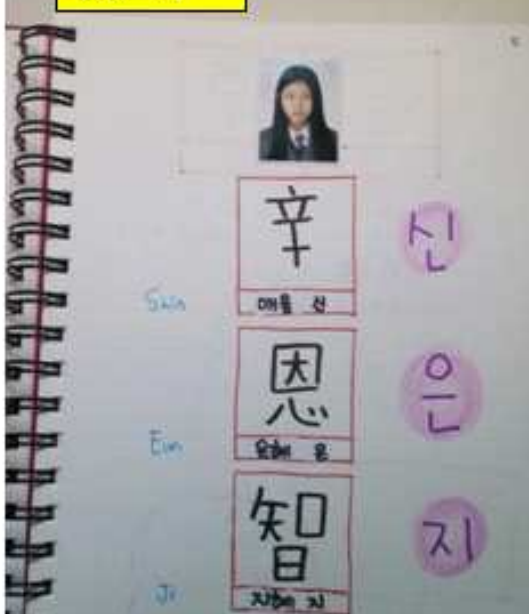 辛 신
Shin 매울 신
恩 은
Eun 은혜 은
智 지
Ji 지혜 지